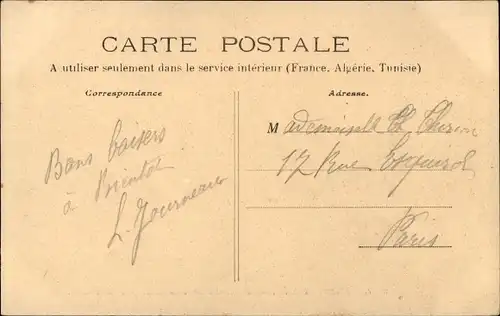 CARTE POSTALE
A utiliser seulement dans le service intérieur (France, Algérie, Tunisie)
Correspondance
Adresse.
Bons baisers
à bientôt
Mademoiselle
17 Rue Esquirol
Paris